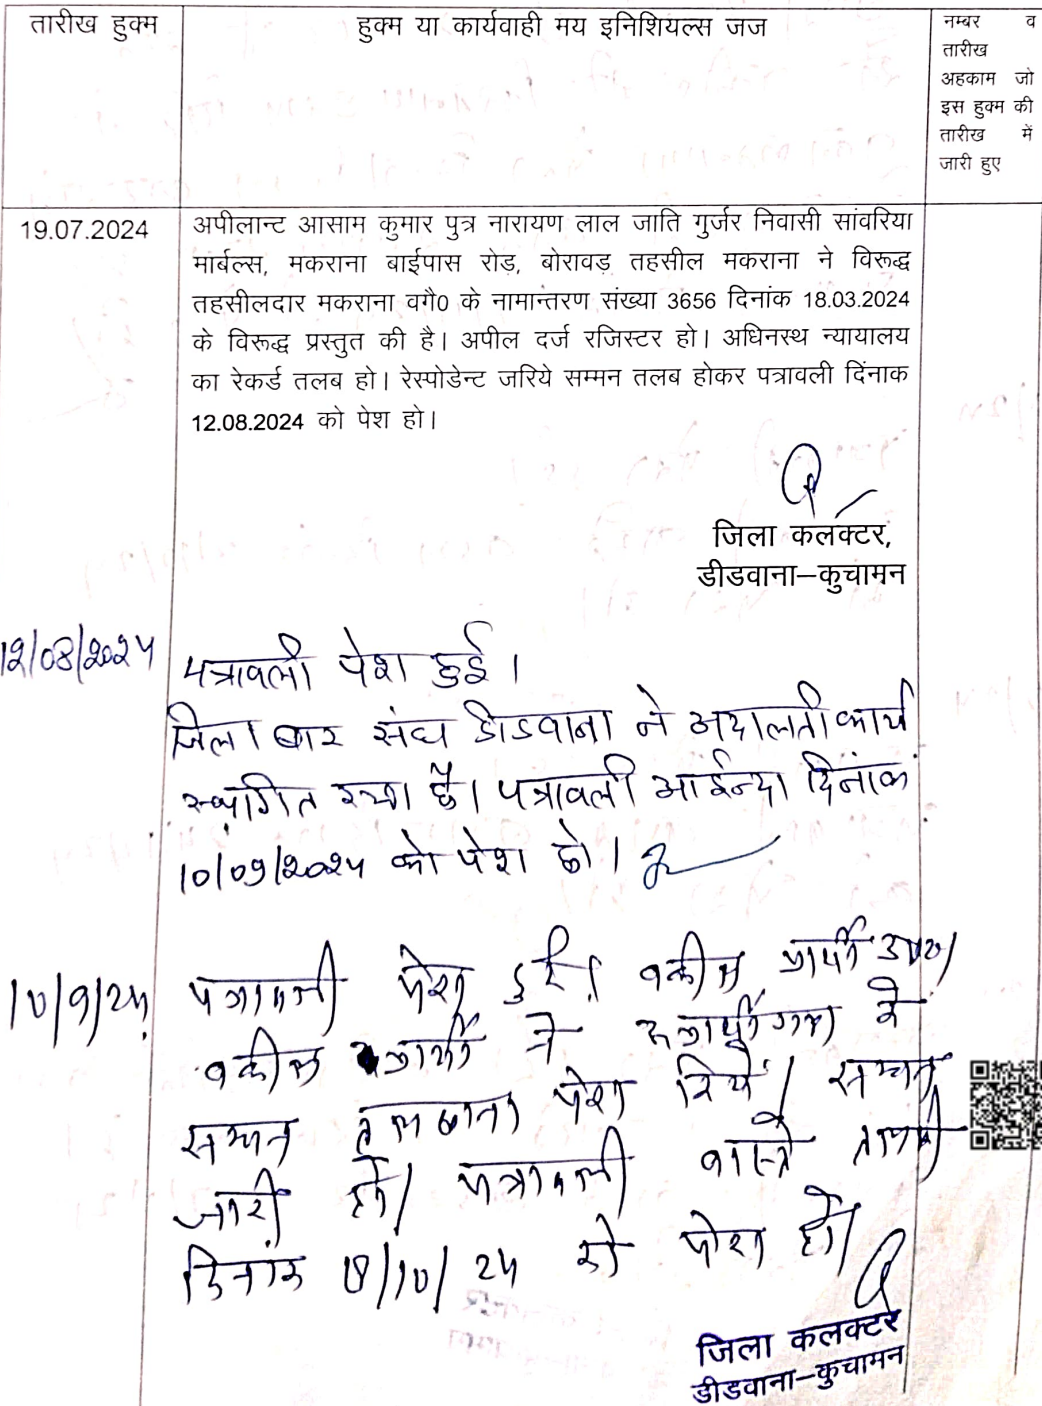 तारीख हुक्म
हुक्म या कार्यवाही मय इनिशियल्स जज
नम्बर व
तारीख
अहकाम जो
इस हुक्म की
तारीख में
जारी हुए
19.07.2024
अपीलान्ट आसाम कुमार पुत्र नारायण लाल जाति गुर्जर निवासी सांवरिया
मार्बल्स, मकराना बाईपास रोड़, बोरावड़ तहसील मकराना ने विरूद्ध
तहसीलदार मकराना वगै0 के नामान्तरण संख्या 3656 दिनांक 18.03.2024
के विरूद्ध प्रस्तुत की है। अपील दर्ज रजिस्टर हो। अधिनस्थ न्यायालय
का रेकर्ड तलब हो। रेस्पोडेन्ट जरिये सम्मन तलब होकर पत्रावली दिंनाक
12.08.2024 को पेश हो।
जिला कलक्टर,
डीडवाना–कुचामन
12/08/2024
पत्रावली पेश हुई।
जिला बार संघ डीडवाना ने अदालती कार्य
स्थगित रखा है। पत्रावली आईन्दा दिनांक
10/09/2024 को पेश हो।
10/9/24
पत्रावली पेश हुई। वकील प्रार्थी उप0।
वकील प्रार्थी ने के
सम्मन तलबाना पेश किये। सम्मन
जारी हो। पत्रावली वास्ते तामील
दिनांक /10/24 को पेश हो।
जिला कलक्टर
डीडवाना–कुचामन